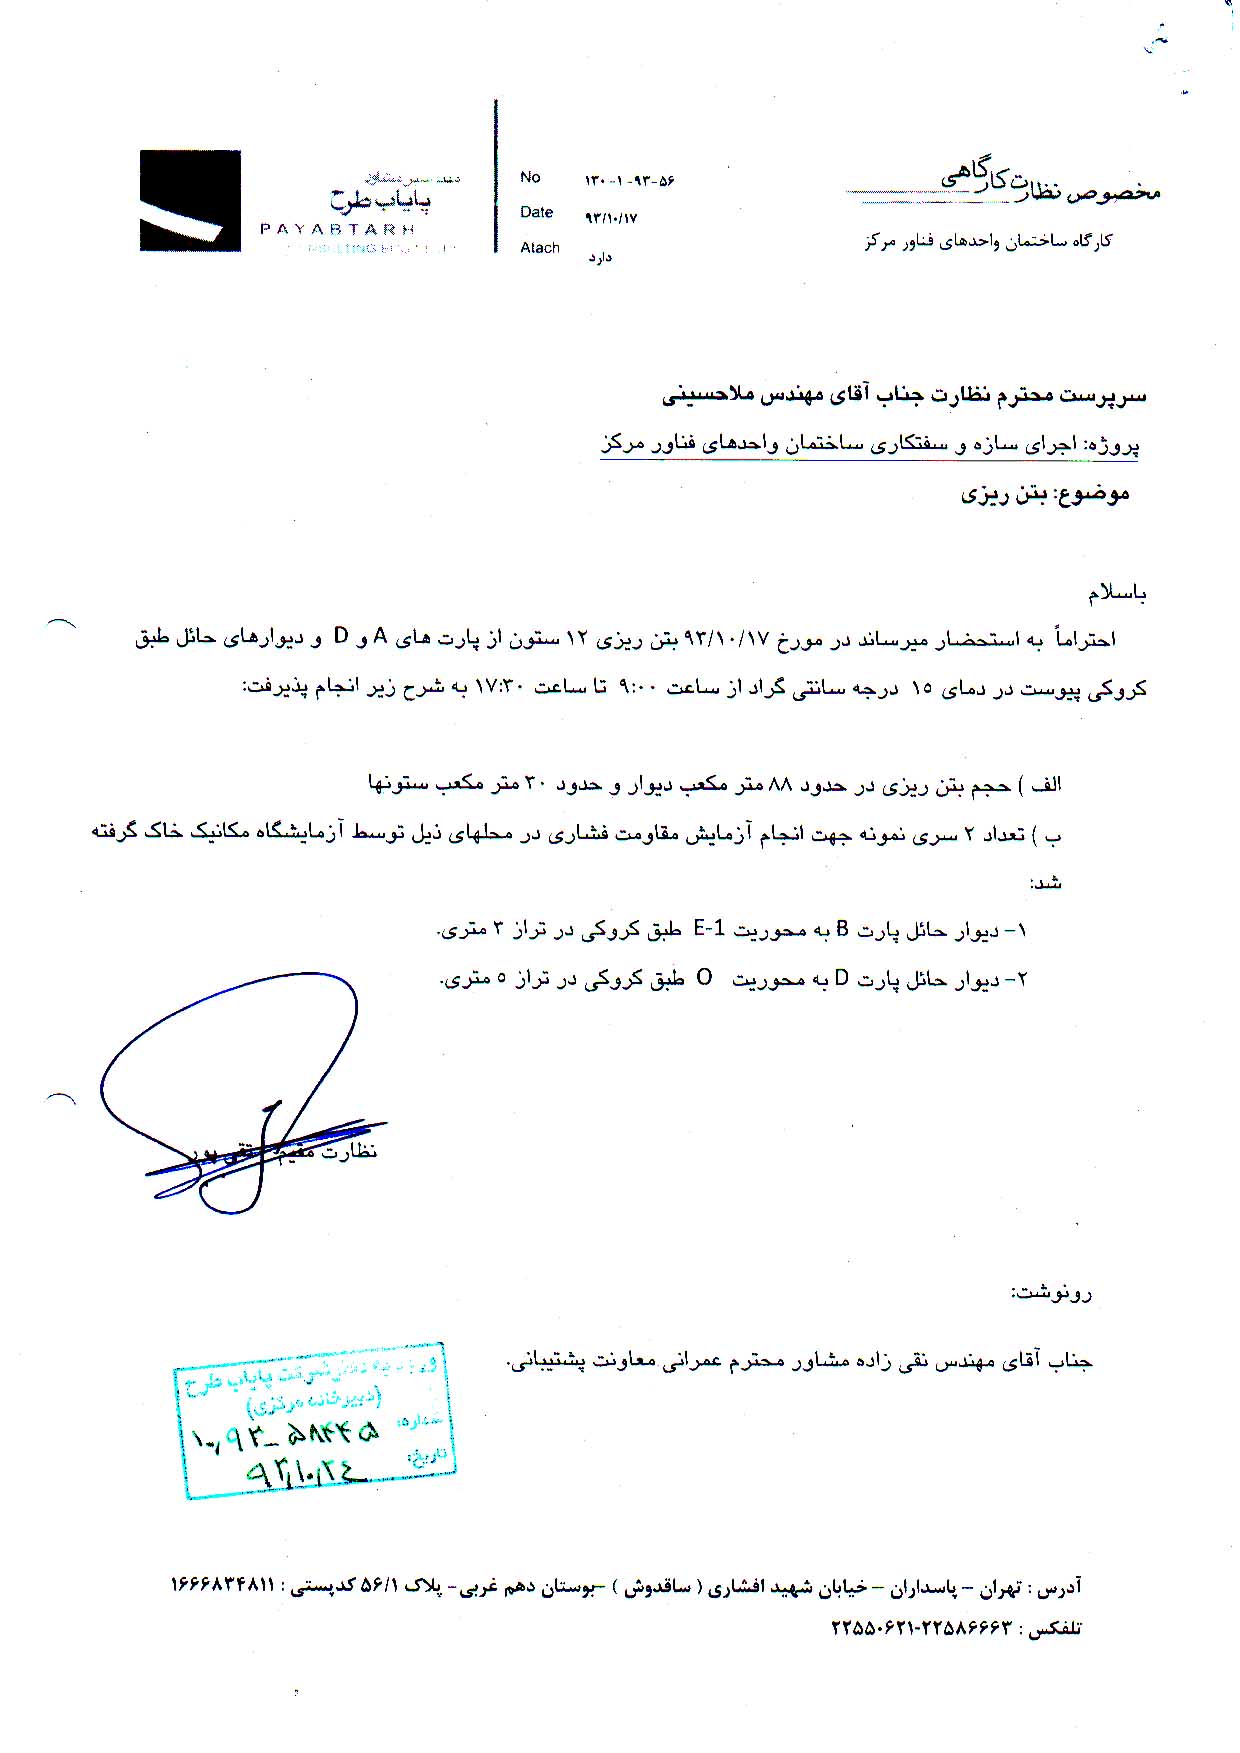 مخصوص نظارت کارگاهی
کارگاه ساختمان واحدهای فناور مرکز
No ۱۳۰-۱-۹۳-۵۶
Date ۹۳/۱۰/۱۷
Atach دارد
پایاب طرح
PAYABTARH
سرپرست محترم نظارت جناب آقای مهندس ملاحسینی
پروژه: اجرای سازه و سفتکاری ساختمان واحدهای فناور مرکز
موضوع: بتن ریزی
باسلام
احتراماً به استحضار میرساند در مورخ ۹۳/۱۰/۱۷ بتن ریزی ۱۲ ستون از پارت های A و D و دیوارهای حائل طبق
کروکی پیوست در دمای ۱۵ درجه سانتی گراد از ساعت ۹:۰۰ تا ساعت ۱۷:۳۰ به شرح زیر انجام پذیرفت:
الف ) حجم بتن ریزی در حدود ۸۸ متر مکعب دیوار و حدود ۳۰ متر مکعب ستونها
ب ) تعداد ۲ سری نمونه جهت انجام آزمایش مقاومت فشاری در محلهای ذیل توسط آزمایشگاه مکانیک خاک گرفته
شد:
۱- دیوار حائل پارت B به محوریت E-1 طبق کروکی در تراز ۳ متری.
۲- دیوار حائل پارت D به محوریت O طبق کروکی در تراز ۵ متری.
نظارت مقیم تقی پور
رونوشت:
جناب آقای مهندس نقی زاده مشاور محترم عمرانی معاونت پشتیبانی.
شرکت پایاب طرح
(دبیرخانه مرکزی)
شماره: ۱۰,۹۳-۵۸۴۴۵
تاریخ: ۹۳,۱۰,۲۴
آدرس : تهران – پاسداران – خیابان شهید افشاری ( ساقدوش ) –بوستان دهم غربی- پلاک ۵۶/۱ کدپستی : ۱۶۶۶۸۳۴۸۱۱
تلفکس : ۲۲۵۸۶۶۶۳-۲۲۵۵۰۶۲۱